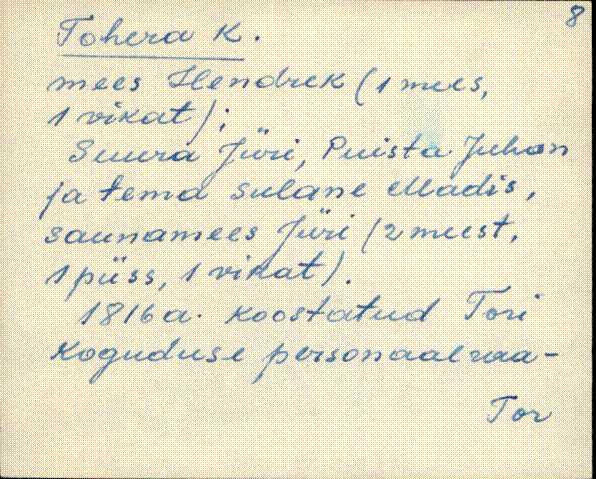 8
Tohera K.
mees Hendrek (1 mees,
1 vikat);
Suura Jüri, Puista Juhan
ja tema sulane Madis,
saunamees Jüri (2 meest,
1 püss, 1 vikat).
1816 a. koostatud Tori
Koguduse personaalraa-
Tor